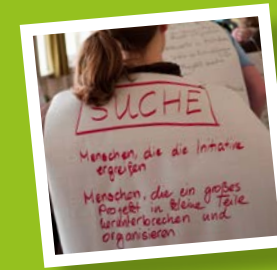 SUCHE
Menschen, die die Initiative
ergreifen
Menschen, die ein großes
Projekt in kleine Teile
herunterbrechen und
organisieren